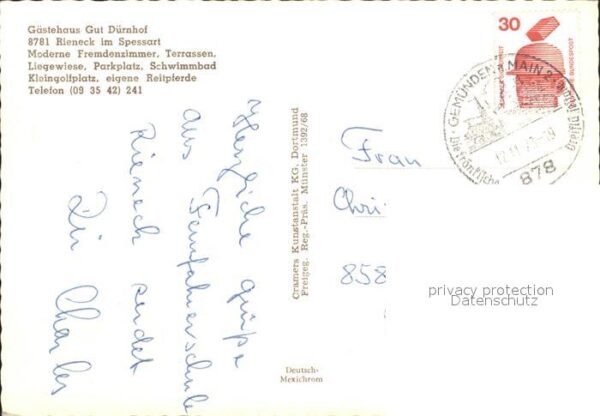 Gästehaus Gut Dürnhof
8781 Rieneck im Spessart
Moderne Fremdenzimmer, Terrassen,
Liegewiese, Parkplatz, Schwimmbad
Kleingolfplatz, eigene Reitpferde
Telefon (09 35 42) 241
Herzliche Grüße
aus Fernfahrerschule
Rieneck sendet
Dir Charles
Cramers Kunstanstalt KG. Dortmund
Freigeg. Reg.-Präs. Münster 1392/68
Deutsch-
Mexichrom
30
DEUTSCHE BUNDESPOST
GEMÜNDEN A MAIN 2
878
Frau
Chri
858
privacy protection
Datenschutz